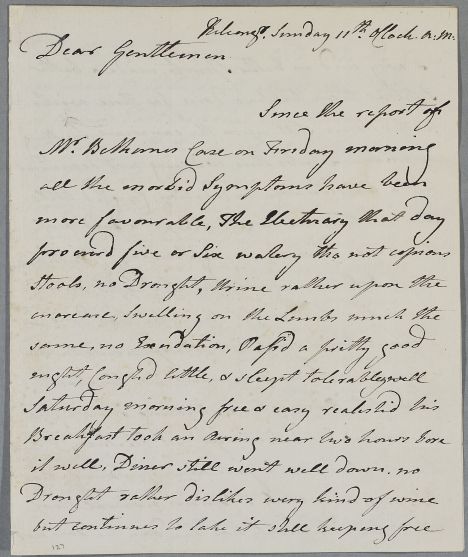 Sunday 11th O'Clock a.m.
Dear Gentlemen
Since the report of
Mr. Case on Friday morning
all the morbid Symptoms have been
more favourable, The Electuary that day
procur'd five or Six watery tho not copious
Stools, no Drought, Urine rather upon the
increase, Swelling on the Limbs much the
same, no Exudation, Pass'd a pritty good
night, Cough'd little, & sleept tolerablywell
Saturday morning free & easy realish'd his
Breakfast took an Airing near two hours bore
it well, Diner still went well down. no
Drought rather dislikes every kind of wine
but continues to take it still keeping free
127